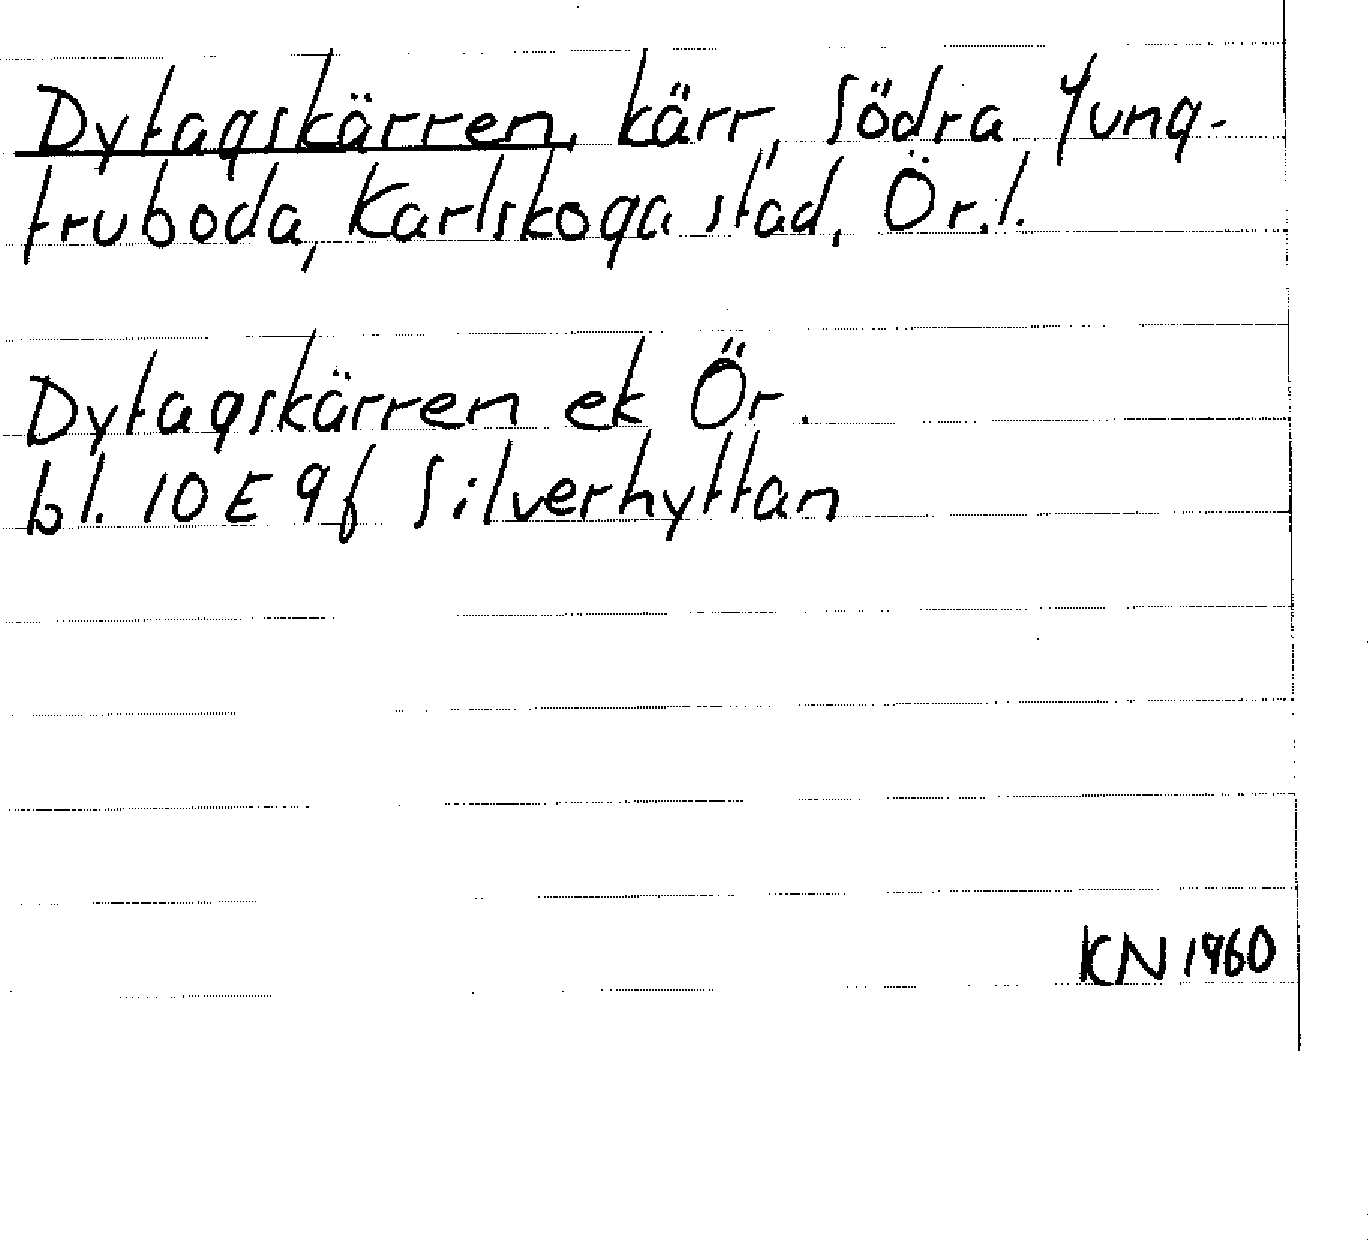 Dytagskärren, kärr, Södra Jung-
fruboda, Karlskoga stad, Ör.l.
Dytagskärren ek Ör.
bl. 10 E 9f Silverhyttan
KN 1960